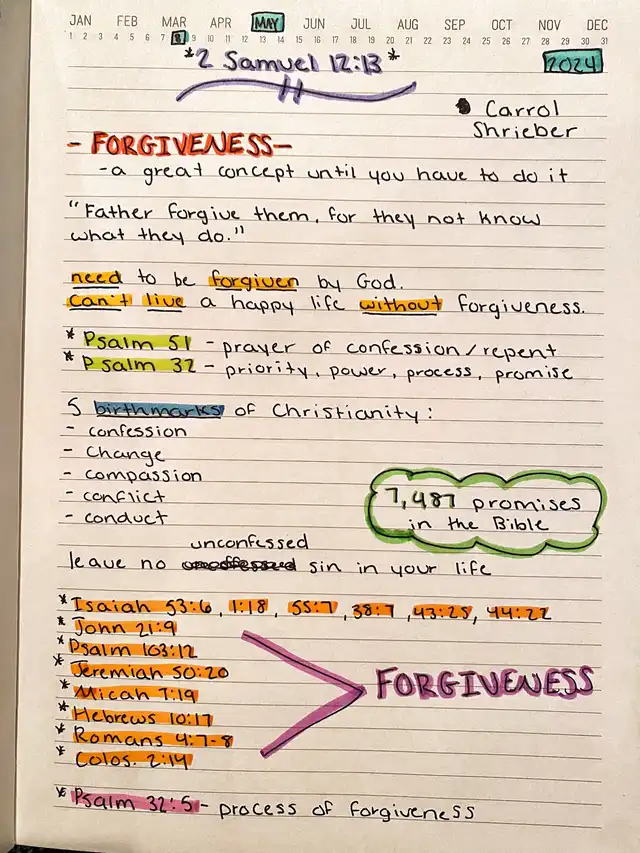 JAN FEB MAR APR MAY JUN JUL AUG SEP OCT NOV DEC
1 2 3 4 5 6 7 8 9 10 11 12 13 14 15 16 17 18 19 20 21 22 23 24 25 26 27 28 29 30 31
*2 Samuel 12:13*
2024
Carrol
Shrieber
- FORGIVENESS-
-a great concept until you have to do it
"Father forgive them, for they not know
what they do."
need to be forgiven by God.
can't live a happy life without forgiveness.
* Psalm 51 - prayer of confession/repent
* Psalm 32 - priority, power, process, promise
5 birthmarks of Christianity:
- confession
- Change
- compassion
- conflict
- conduct
7,487 promises
in the Bible
unconfessed
leave no sin in your life
*Isaiah 53:6, 1:18, 55:7, 38:7, 43:25, 44:22
* John 21:9
*Psalm 103:12
* Jeremiah 50:20
* Micah 7:19
* Hebrews 10:17
* Romans 4:7-8
* Colos. 2:14
FORGIVENESS
* Psalm 32:5- process of forgiveness